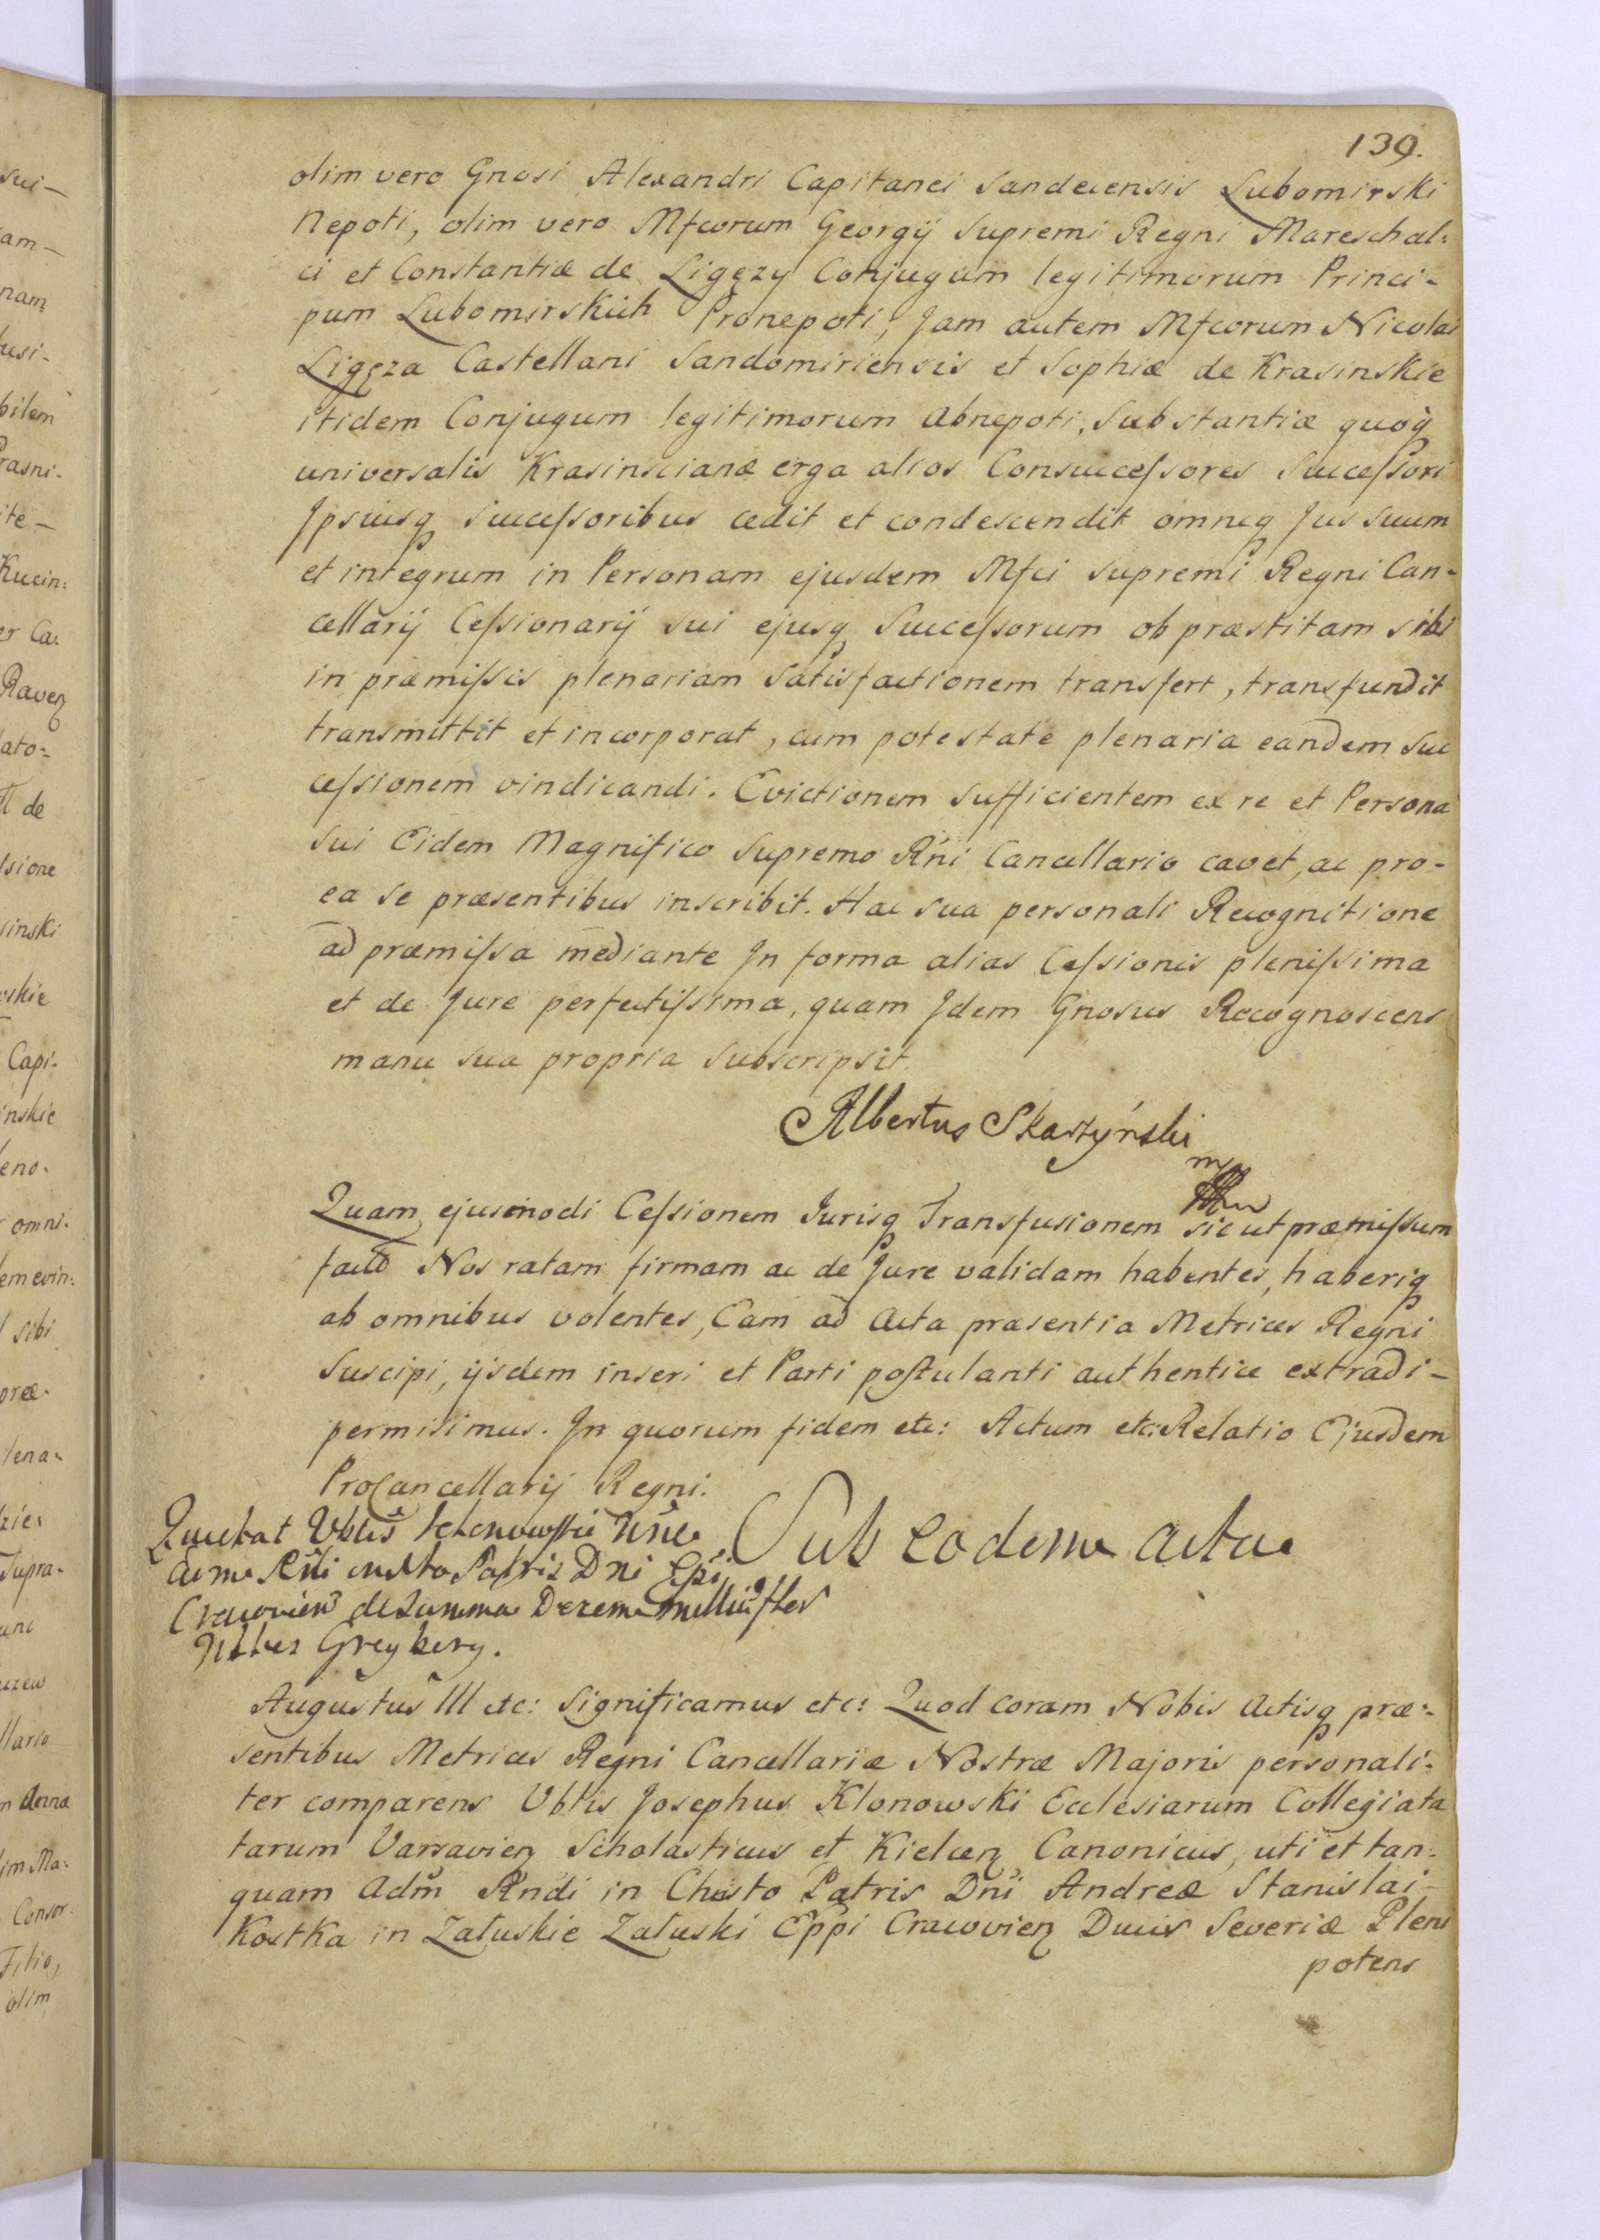 139.
olim vero Gnosi Alexandri Capitanei Sandecensis Lubomirski
Nepoti, olim vero Mfcorum Georgij Supremi Regni Mareschal:
ci et Constantiæ de Ligęzy Conjugum legitimorum Princi-
pum Lubomirskich Pronepoti, Jam autem Mfcorum Nicolai
Ligęza Castellani Sandomiriensis et Sophiæ de Krasinskie
itidem Conjugum legitimorum Abnepoti, Substantiæ quoq̃
universalis Krasinscianæ erga alios Consuccessores Successori
Ipsiusq̃ successoribus cedit et condescendit omneq̃ Jus suum
et integrum in Personam ejusdem Mfci Supremi Regni Can-
cellarij Cessionarij sui ejusq̃ Successorum ob præstitam sibi
in præmissis plenariam satisfactionem transfert, transfundit
transmittit et incorporat, cum potestate plenaria eandem Suc
cessionem vindicandi. Evictionem sufficientem ex re et Persona
Sui Eidem Magnifico Supremo Rńi Cancellario cavet, ac pro-
ea se præsentibus inscribit. Hac sua personali Recognitione
ad præmissa mediante In forma alias Cessionis plenissima
et de Jure perfectissima, quam Idem Gnosus Recognoscens
manu sua propria subscripsit.
Albertus Skarzyński
mp
Quam ejusmodi Cessionem Jurisq̃ Transfusionem sicut præmissum
Nos ratam firmam ac de Jure validam habentes, haberiq̃
ab omnibus volentes, Eam ad Acta præsentia Metrices Regni
Suscipi, ijsdem inseri et Parti postulanti authentice extradi-
permisimus. In quorum fidem etc: Actum etc: Relatio Ejusdem
ProCancellarij Regni.
Quietat Vblis
Patris Dni Eppi
Cracovien de Summa Decem
Greyberg.
Sub eodem actu
Augustus III etc: Significamus etc: Quod coram Nobis Actisq̃ præ:
sentibus Metrices Regni Cancellariæ Nostræ Majoris personali:
ter comparens Vblis Josephus Klonowski Ecclesiarum Collegiata
tarum Varsavien Scholasticus et Kielcen Canonicus, uti et tan:
quam Adm̃ Rndi in Christo Patris Dni Andreæ Stanislai-
Kostka in Załuskie Załuski Eppi Cracovien Ducis Severiæ Pleni
potens